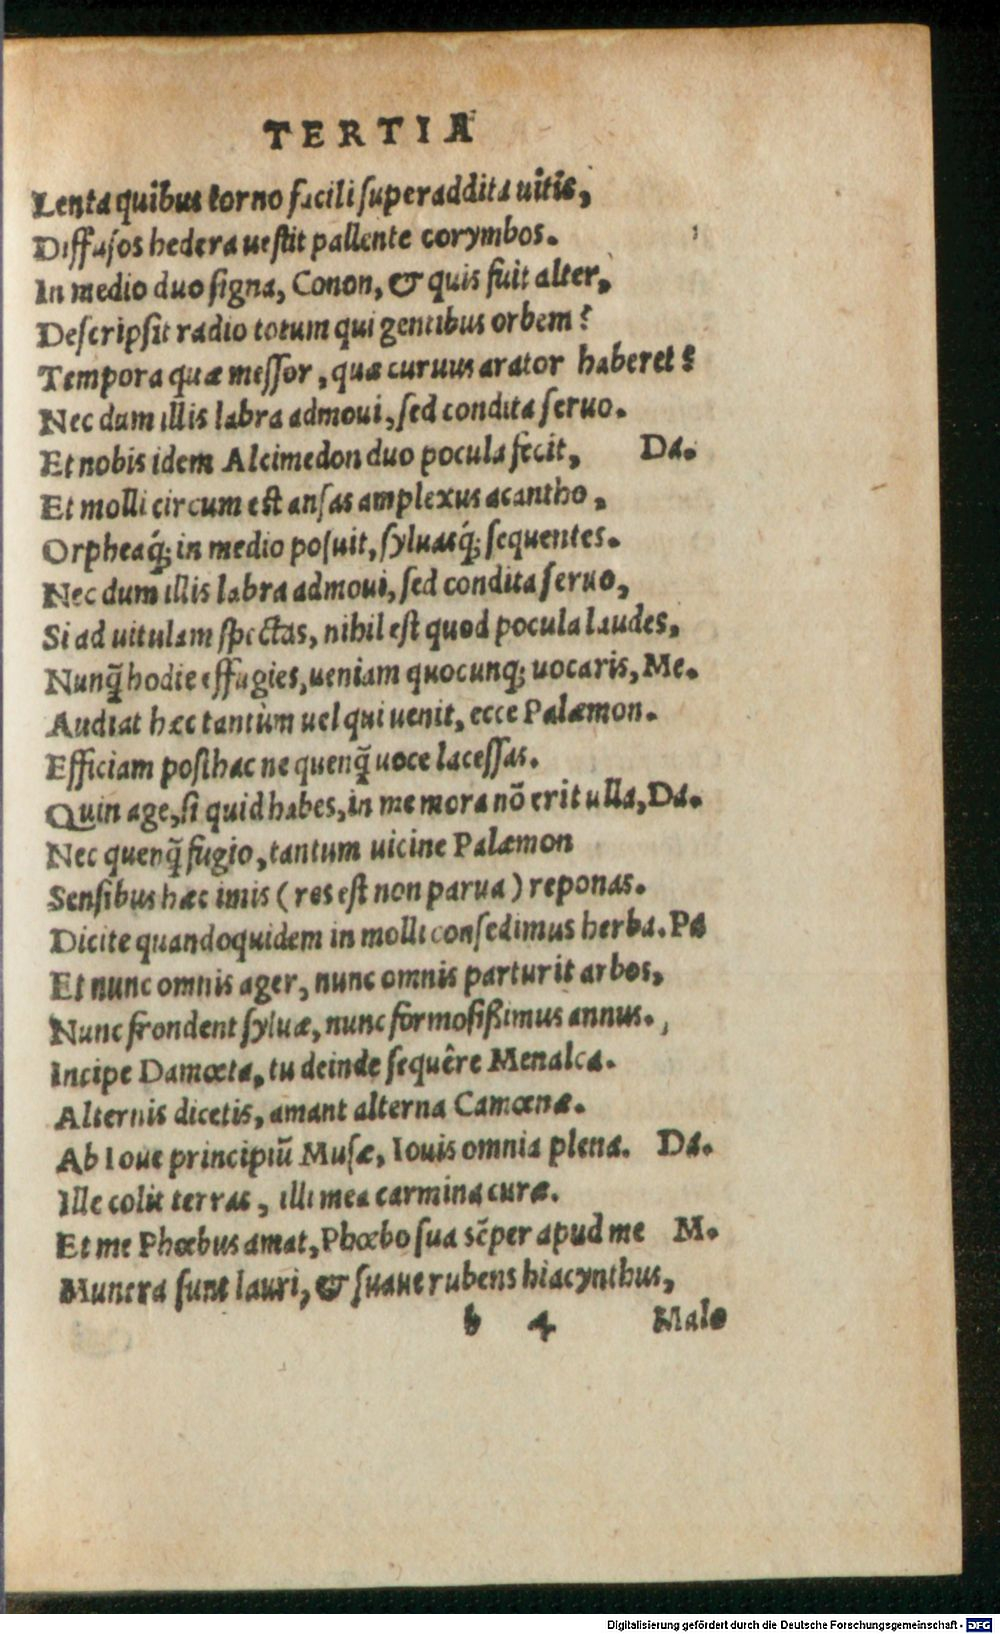 TERTIA
Lenta quibus torno facili superaddita uitis,
Diffusos hedera uestit pallente corymbos.
In medio duo signa, Conon, & quis fuit alter,
Descripsit radio totum qui gentibus orbem?
Tempora quæ messor, quæ curuus arator haberet?
Nec dum illis labra admoui, sed condita seruo.
Et nobis idem Alcimedon duo pocula fecit, Da.
Et molli circum est ansas amplexus acantho,
Orpheaq́; in medio posuit, syluasq́; sequentes.
Nec dum illis labra admoui, sed condita seruo,
Si ad uitulam spectas, nihil est quod pocula laudes,
Nunq̃ hodie effugies, ueniam quocunq; uocaris, Me.
Audiat hæc tantùm uel qui uenit, ecce Palæmon.
Efficiam posthac ne quenq̃ uoce lacessas.
Quin age, si quid habes, in me mora nõ erit ulla, Da.
Nec quenq̃ fugio, tantum uicine Palæmon
Sensibus hæc imis (res est non parua) reponas.
Dicite quandoquidem in molli consedimus herba. Pa
Et nunc omnis ager, nunc omnis parturit arbos,
Nunc frondent syluæ, nunc formosißimus annus.
Incipe Damœta, tu deinde sequêre Menalca.
Alternis dicetis, amant alterna Camœnæ.
Ab Ioue principiũ Musæ, Iouis omnia plena. Da.
Ille colit terras, illi mea carmina curæ.
Et me Phœbus amat, Phœbo sua sẽper apud me M.
Munera sunt lauri, & suaue rubens hiacynthus,
b 4 Malo
Digitalisierung gefördert durch die Deutsche Forschungsgemeinschaft - DFG